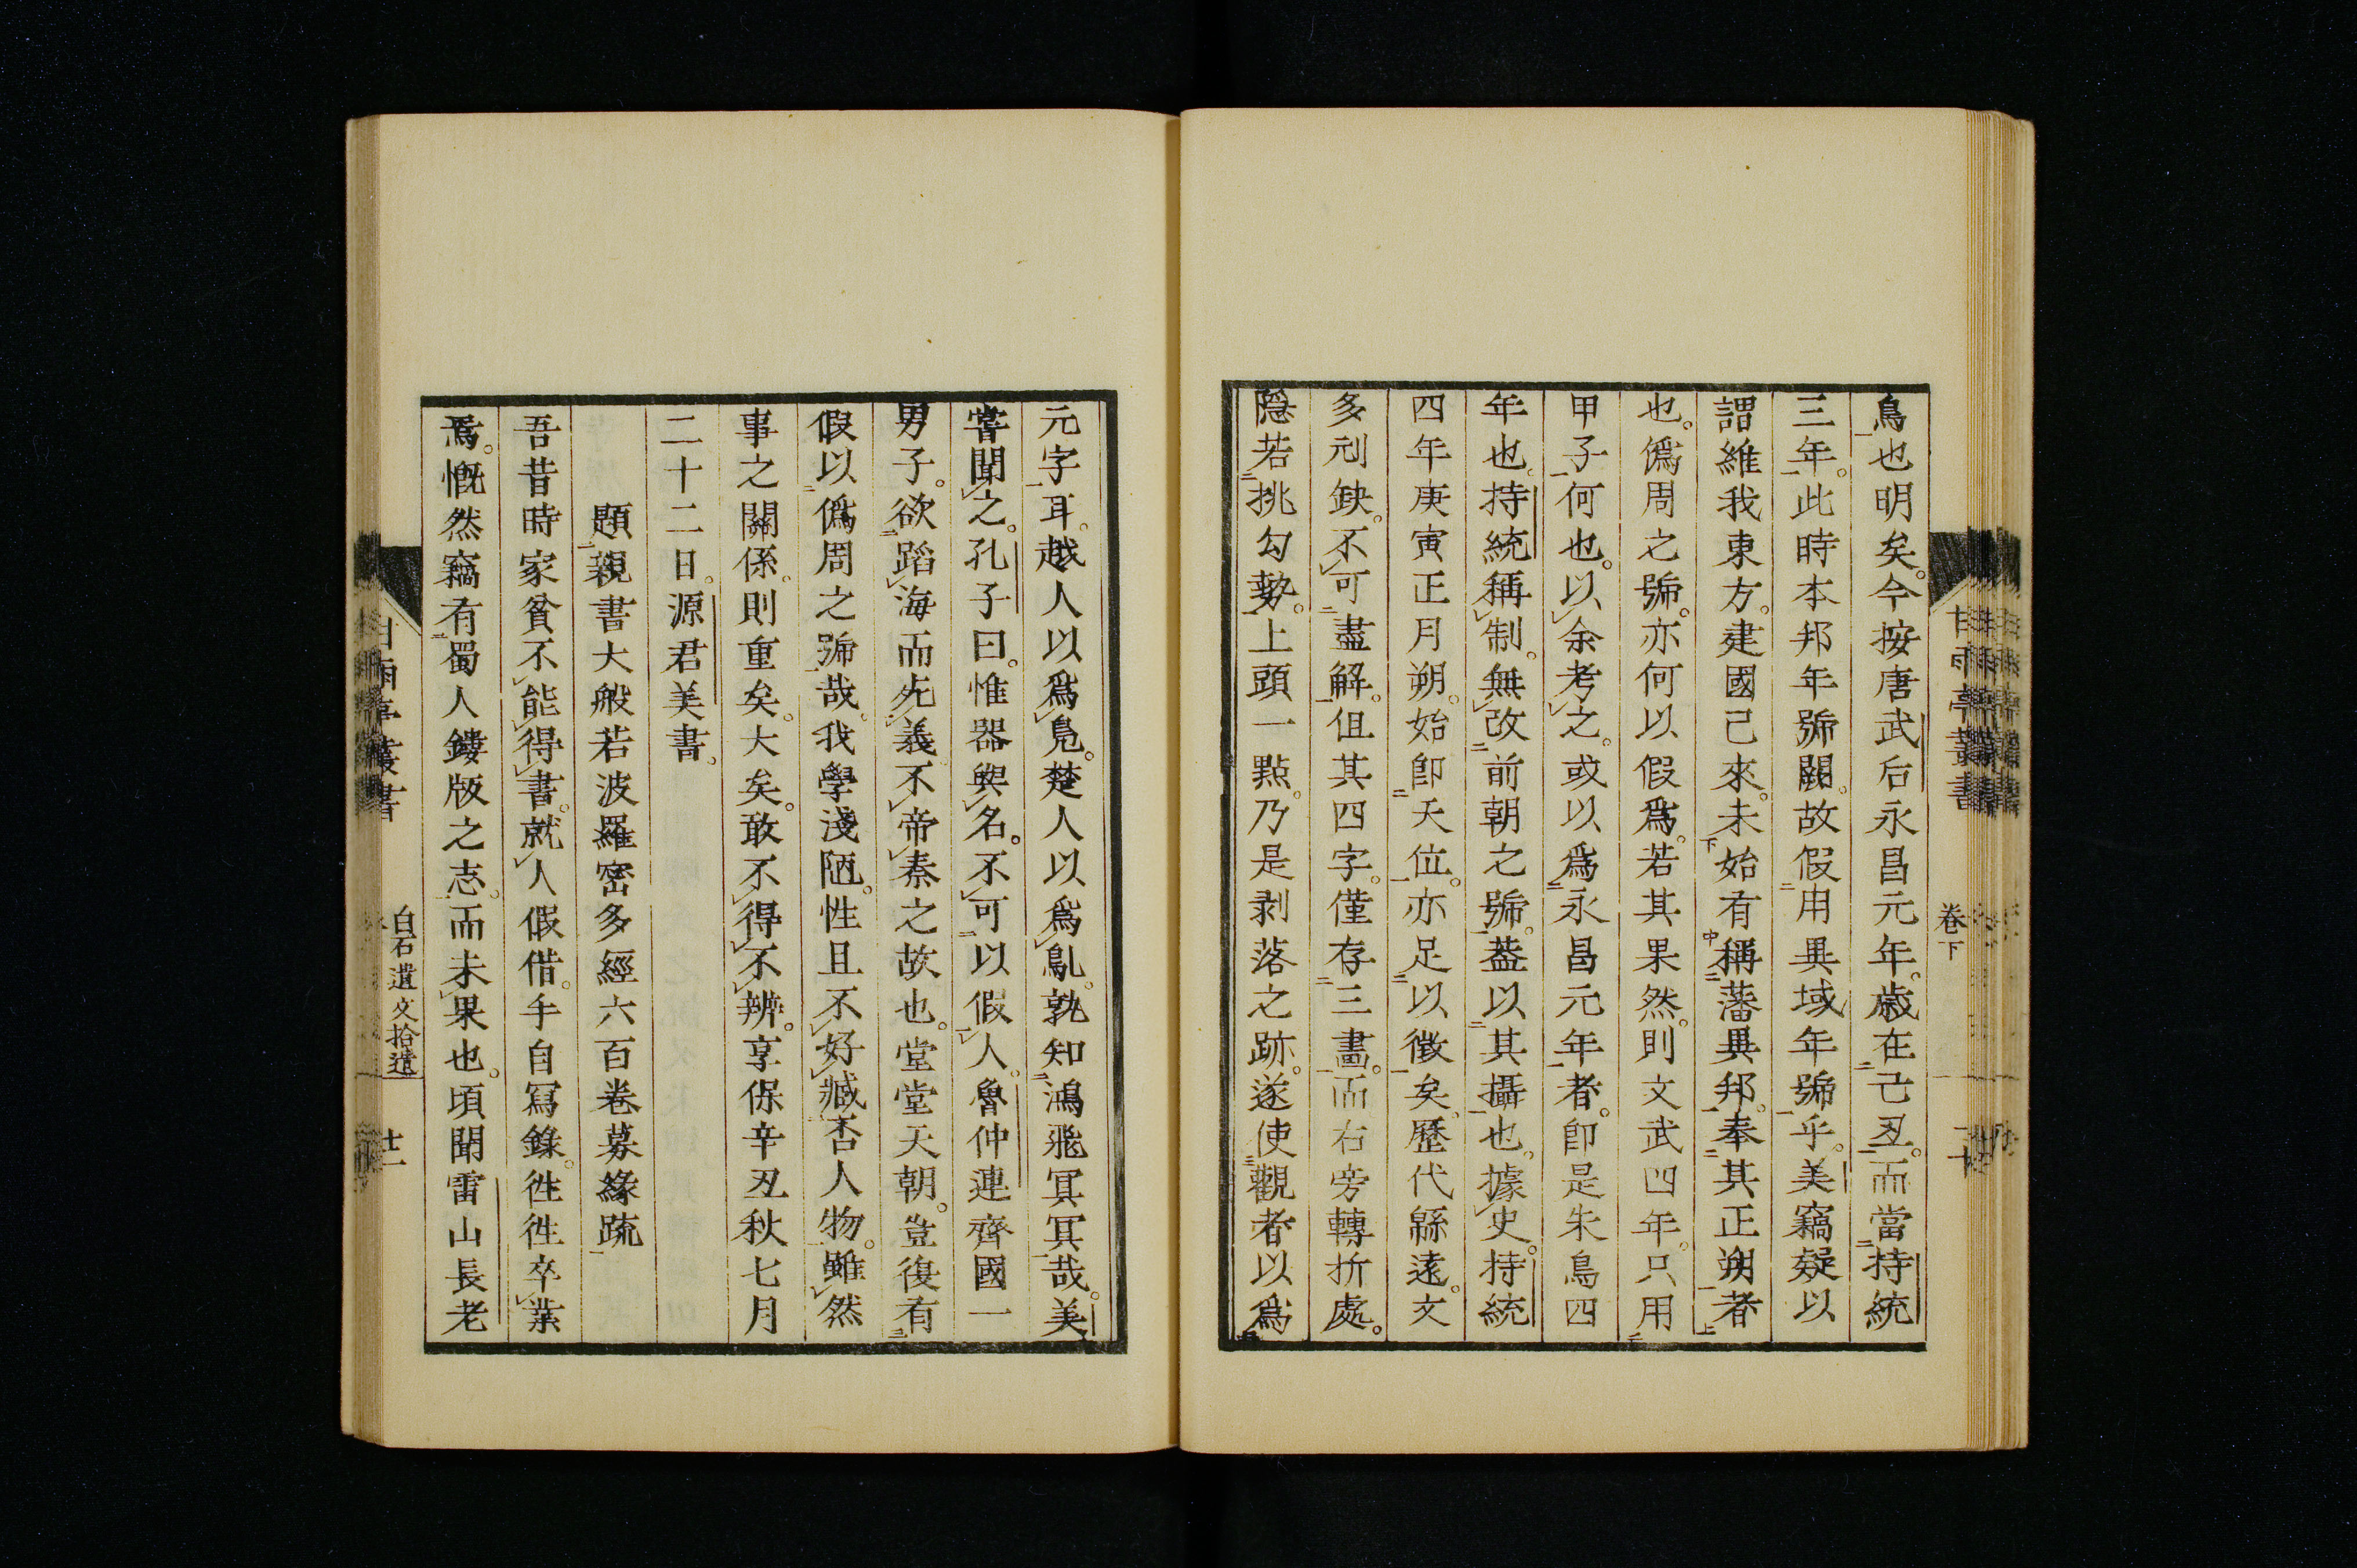 鳥也明矣。今按唐武后永昌元年。歲在己丑。而當持統
三年。此時本邦年號闕。故假用異域年號乎。美竊疑以
謂維我東方。建國已來。未始有稱藩異邦。奉其正朔者
也。僞周之號。亦何以假爲。若其果然。則文武四年。只用
甲子何也。以余考之。或以爲永昌元年者。卽是朱鳥四
年也。持統稱制。無改前朝之號。蓋以其攝也。據史。持統
四年庚寅正月朔。始卽天位。亦足以徵矣。歷代緜遠。文
多刓缺。不可盡解。但其四字。僅存三畫。而右旁轉折處。
隱若挑勾勢。上頭一點。乃是剥落之跡。遂使觀者以爲
甘雨亭叢書
卷下
二十
元字耳。越人以爲鳧。楚人以爲鳦。孰知鴻飛冥冥哉。美
嘗聞之。孔子曰。惟器與名。不可以假人。魯仲連齊國一
男子。欲蹈海而死。義不帝秦之故也。堂堂天朝。豈復有
假以僞周之號哉。我學淺陋。性且不好臧否人物。雖然
事之關係。則重矣。大矣。敢不得不辨。享保辛丑秋七月
二十二日。源君美書。
題親書大般若波羅密多經六百卷募緣疏
吾昔時家貧不能得書。就人假借。手自寫錄。徃徃卒業
焉。慨然竊有蜀人鏤版之志。而未果也。頃聞雷山長老
甘雨亭叢書
白石遺文拾遺
廿一